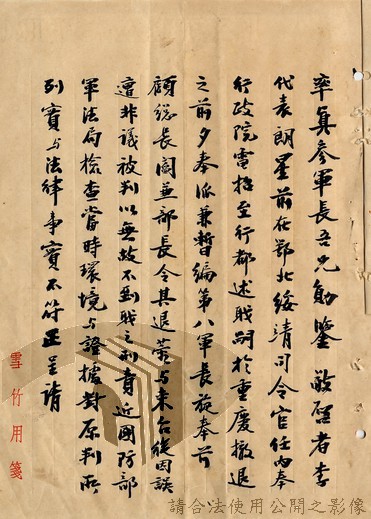 率真參軍長吾兄勛鑒 敬啓者李
代表朗星前在鄂北綏靖司令官任內奉
行政院電招至行都述職嗣於重慶撤退
之前夕奉派兼暫編第八軍長旋奉前
顧總長閻兼部長令其退蓉与來台後因誤
遭非議被判以無故不到職之刑責近國防部
軍法局檢查當時環境与證據對原判所
列實与法律事實不符正呈請
雪竹用箋
請合法使用公開之影像